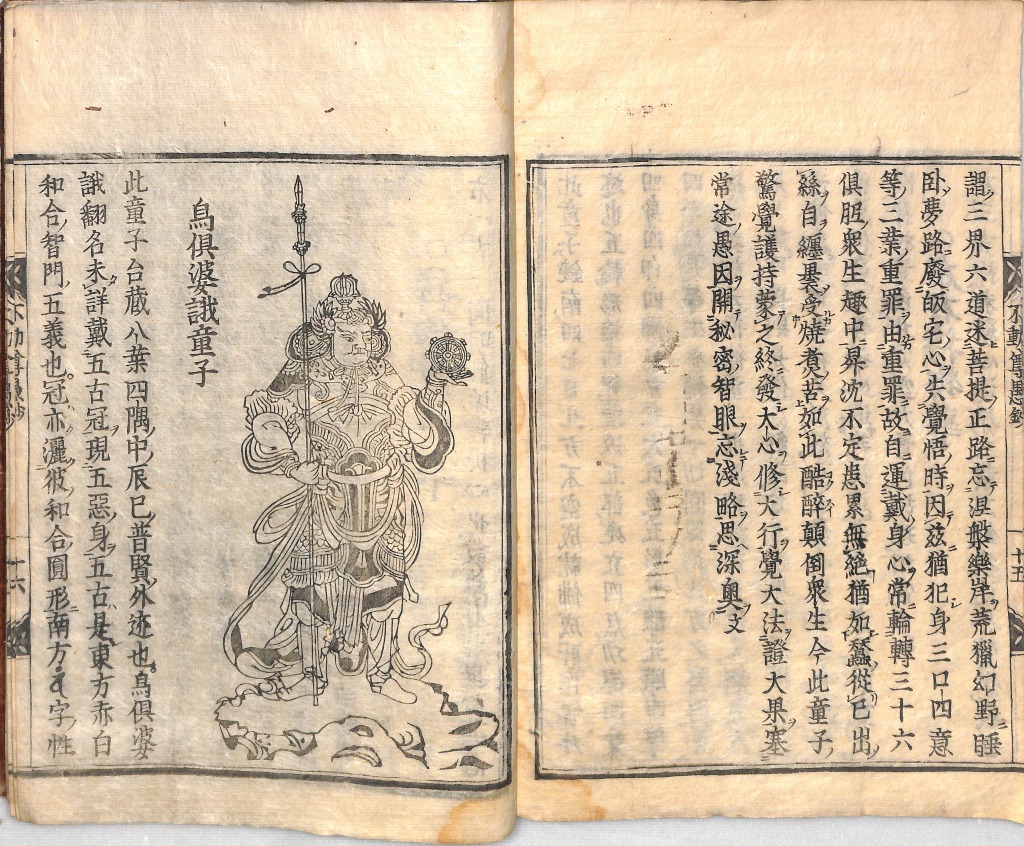 謂三界六道迷菩提正路忘涅槃樂岸荒獵幻野睡
臥夢路廢皈宅心失覺悟時因茲猶犯身三口四意
等三業重罪由重罪故自運戴身心常輪轉三十六
俱胝衆生趣中昇沈不定患累無絕猶如蠶從已出
絲自纏褁受燒煑苦如此酷醉顛倒衆生今此童子
驚覺護持蒙之終發大心修大行覺大法證大果塞
常途愚因開秘密智眼忘淺略思深奧文
不動尊愚鈔
十五
烏俱婆誐童子
此童子台藏八葉四隅中辰巳普賢外迹也烏俱婆
誐翻名未詳戴五古冠現五惡身五古是東方赤白
和合智門五義也冠亦灑彼和合圓形南方字性
十六